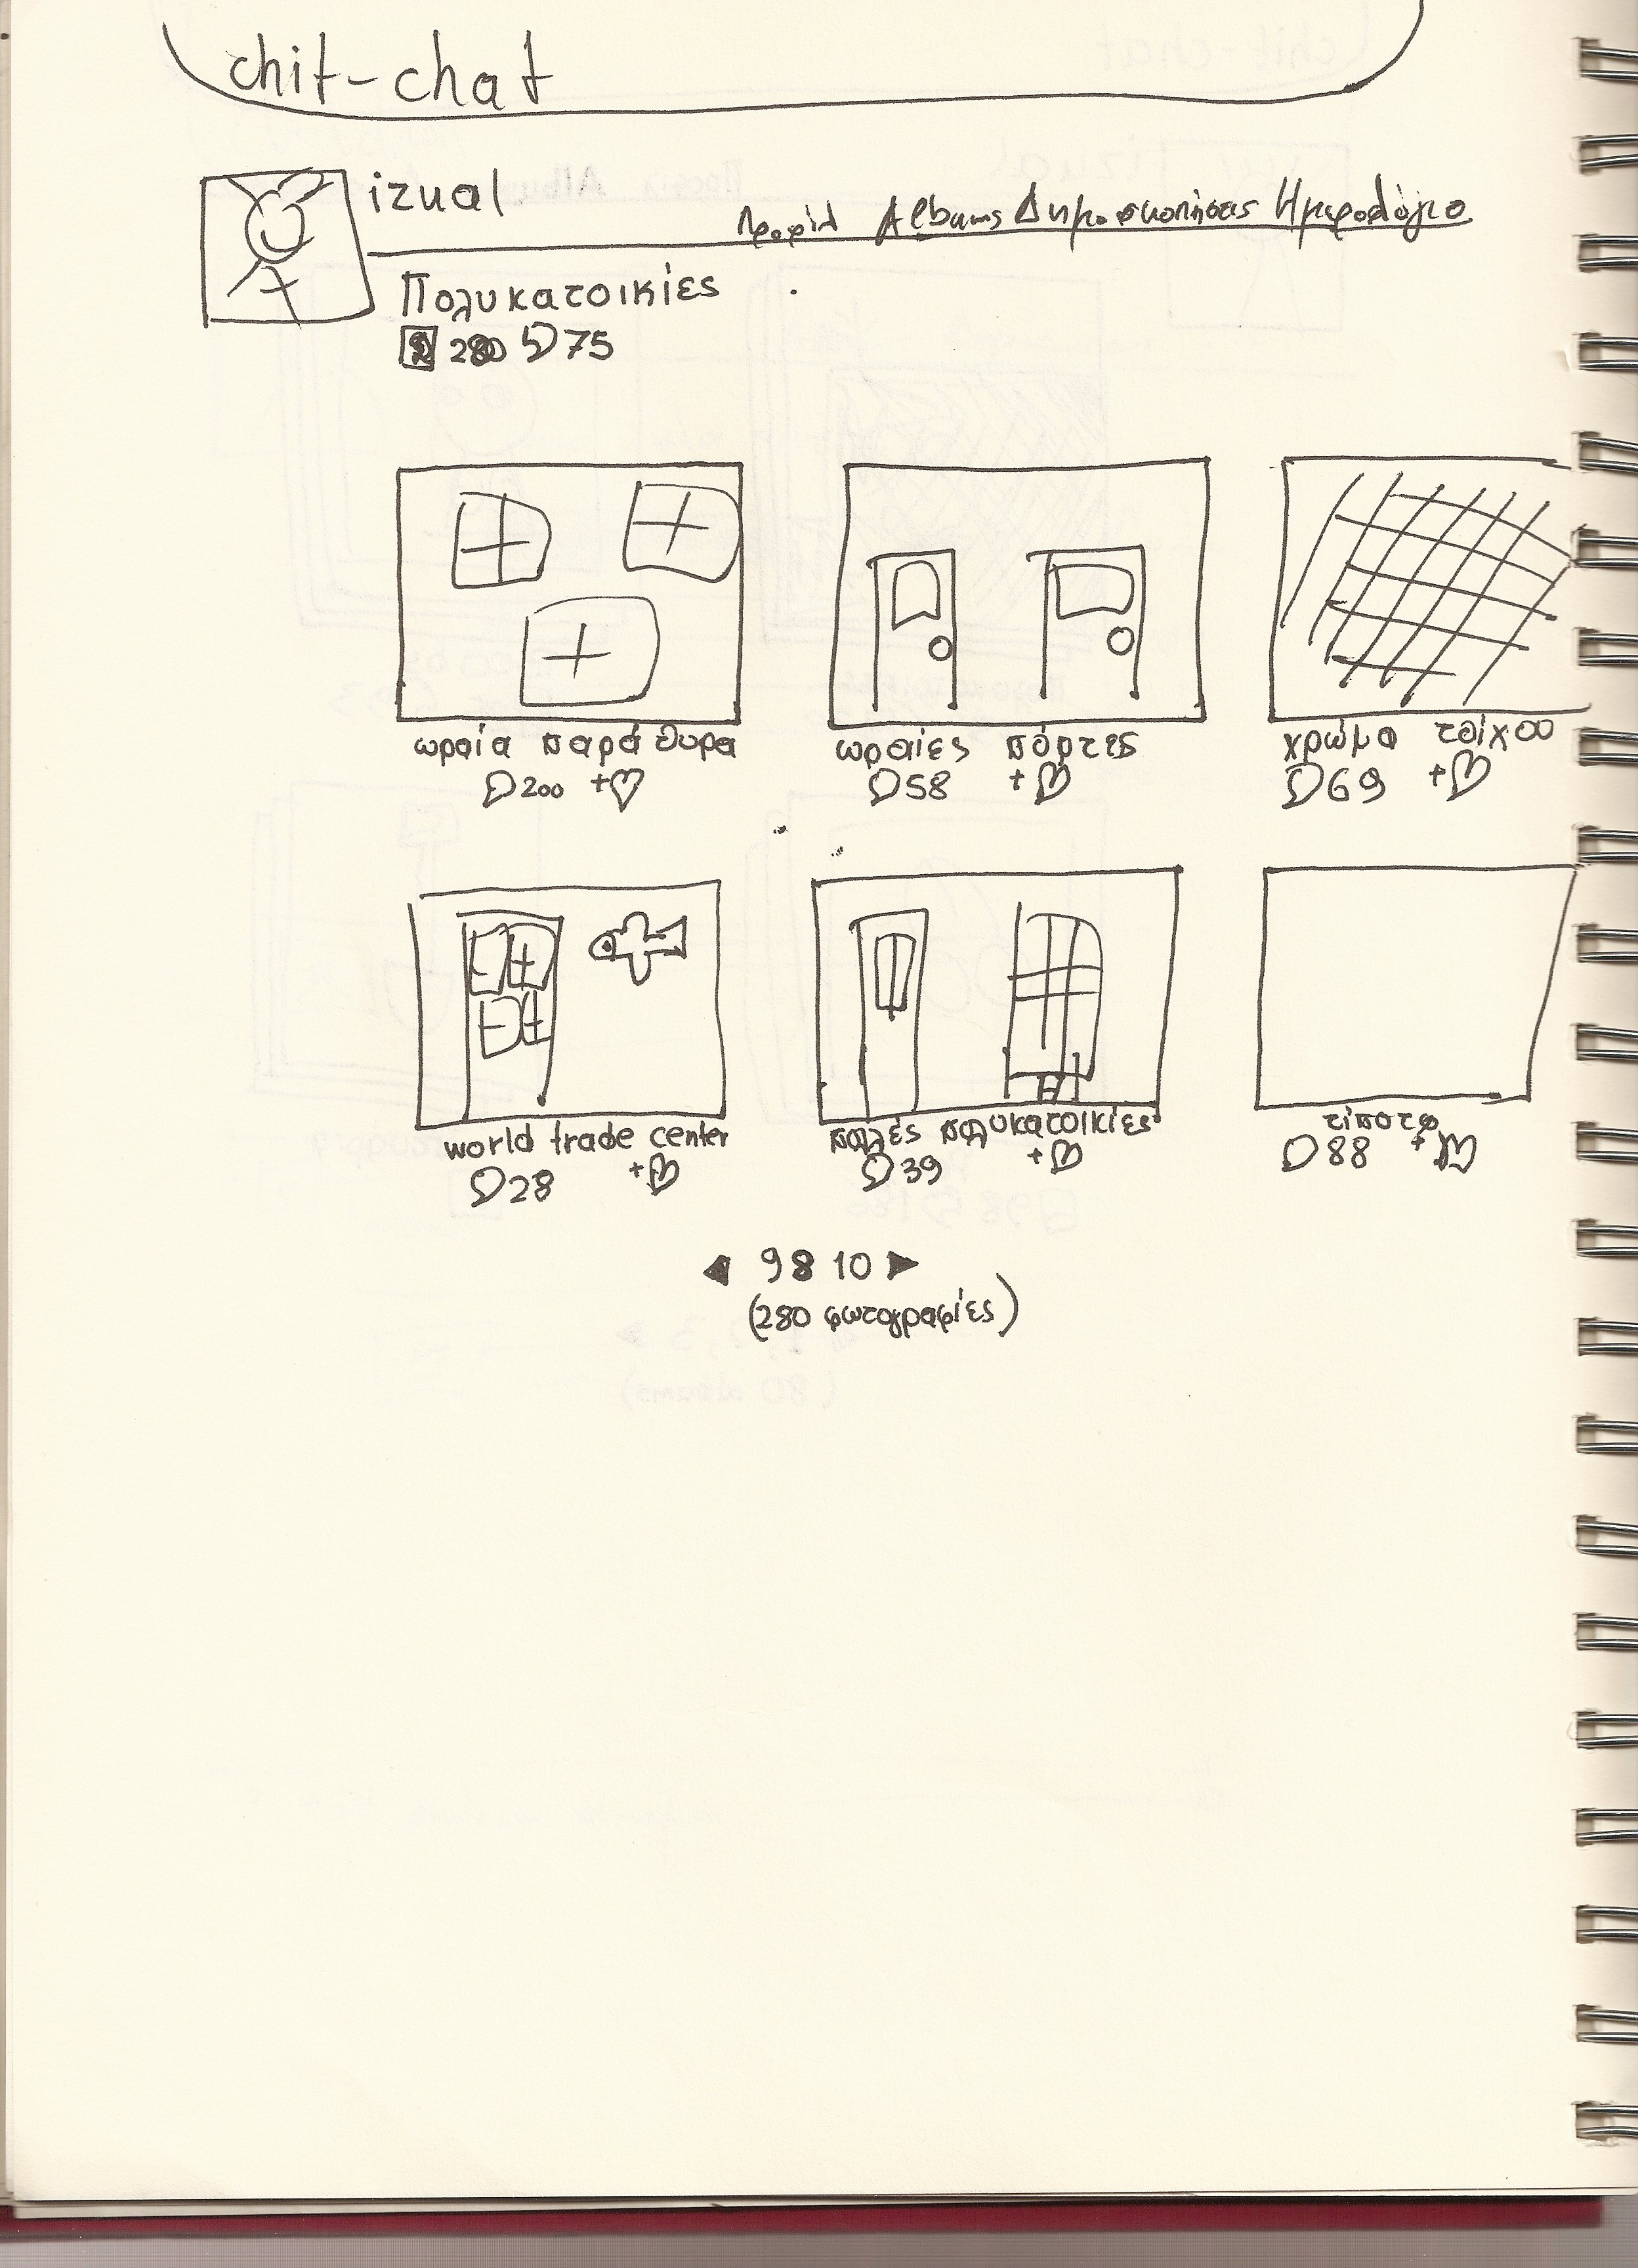 chit-chat
izual
Προφίλ Albums Δημοσκοπήσεις Ημερολόγιο
Πολυκατοικίες
280 75
ωραία παράθυρα
200 +
ωραίες πόρτες
58 +
χρώμα τοίχου
69 +
world trade center
28 +
πολλές πολυκατοικίες
39 +
τίποτα
88 +
◄ 9 8 10 ►
(280 φωτογραφίες)